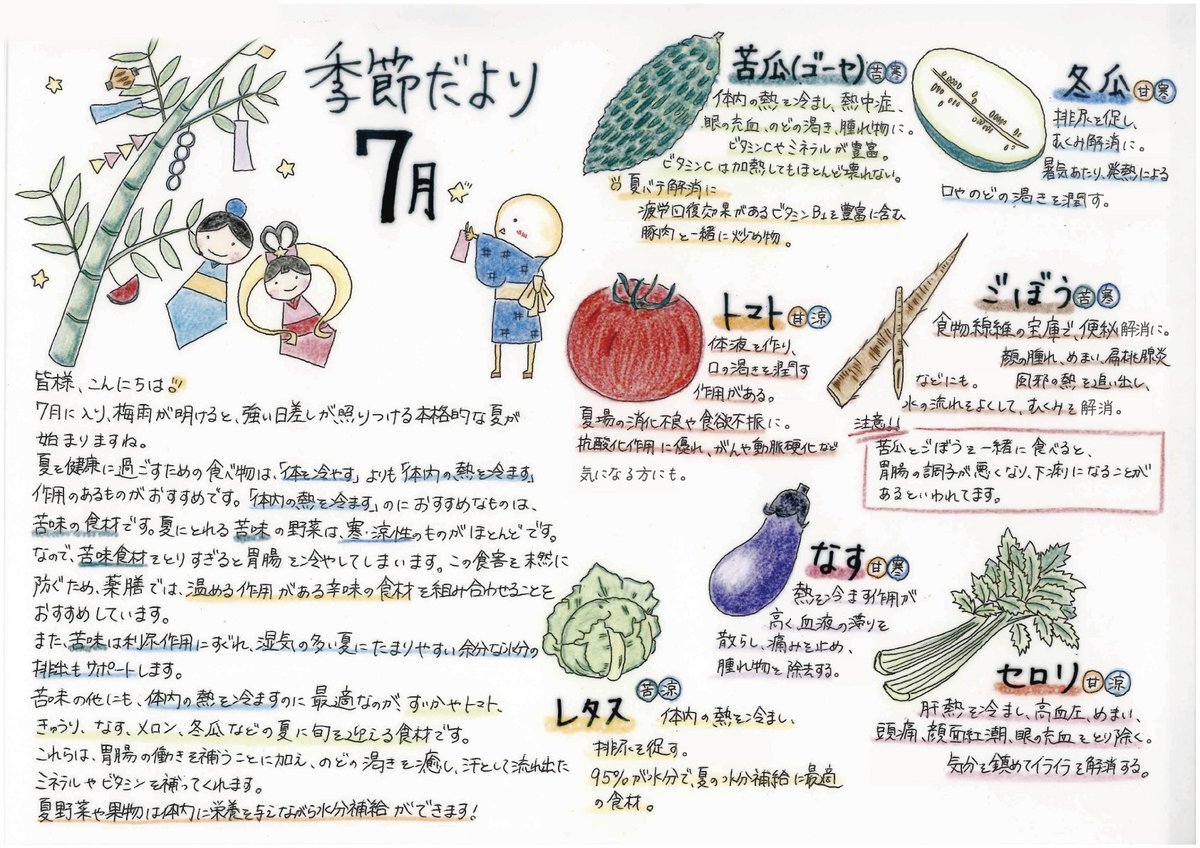 季節だより
7月
皆様、こんにちは!!
7月に入り、梅雨が明けると、強い日差しが照りつける本格的な夏が
始まりますね。
夏を健康に過ごすための食べ物は、「体を冷やす」よりも「体内の熱を冷ます」
作用のあるものがおすすめです。「体内の熱を冷ます」のにおすすめなものは、
苦味の食材です。夏にとれる苦味の野菜は、寒・涼性のものがほとんどです。
なので、苦味食材をとりすぎると胃腸を冷やしてしまいます。この食害を未然に
防ぐため、薬膳では、温める作用がある辛味の食材を組み合わせることを
おすすめしています。
また、苦味は利尿作用にすぐれ、湿気の多い夏にたまりやすい余分な水分の
排出もサポートします。
苦味の他にも、体内の熱を冷ますのに最適なのが、すいかやトマト、
きゅうり、なす、メロン、冬瓜などの夏に旬を迎える食材です。
これらは、胃腸の働きを補うことに加え、のどの渇きを癒し、汗として流れ出た
ミネラルやビタミンを補ってくれます。
夏野菜や果物は体内に栄養を与えながら水分補給ができます!
苦瓜(ゴーヤ)苦寒
体内の熱を冷まし、熱中症、
眼の充血、のどの渇き、腫れ物に。
ビタミンCやミネラルが豊富。
ビタミンCは加熱してもほとんど壊れない。
夏バテ解消に
疲労回復効果があるビタミンB1を豊富に含む
豚肉と一緒に炒め物。
冬瓜 甘寒
排尿を促し、
むくみ解消に。
暑気あたり、発熱による
口やのどの渇きを潤す。
トマト 甘涼
体液を作り、
口の渇きを潤す
作用がある。
夏場の消化不良や食欲不振に。
抗酸化作用に優れ、がんや動脈硬化など
気になる方にも。
ごぼう 苦寒
食物繊維の宝庫で、便秘解消に。
顔の腫れ、めまい、扁桃腺炎
などにも。 風邪の熱を追い出し、
水の流れをよくして、むくみを解消。
注意!!
苦瓜とごぼうを一緒に食べると、
胃腸の調子が悪くなり、下痢になることが
あるといわれてます。
なす 甘寒
熱を冷ます作用が
高く血液の滞りを
散らし、痛みを止め、
腫れ物を除去する。
レタス 苦涼
体内の熱を冷まし、
排尿を促す。
95%が水分で、夏の水分補給に最適
の食材。
セロリ 甘涼
肝熱を冷まし、高血圧、めまい、
頭痛、顔面紅潮、眼の充血をとり除く。
気分を鎮めてイライラを解消する。